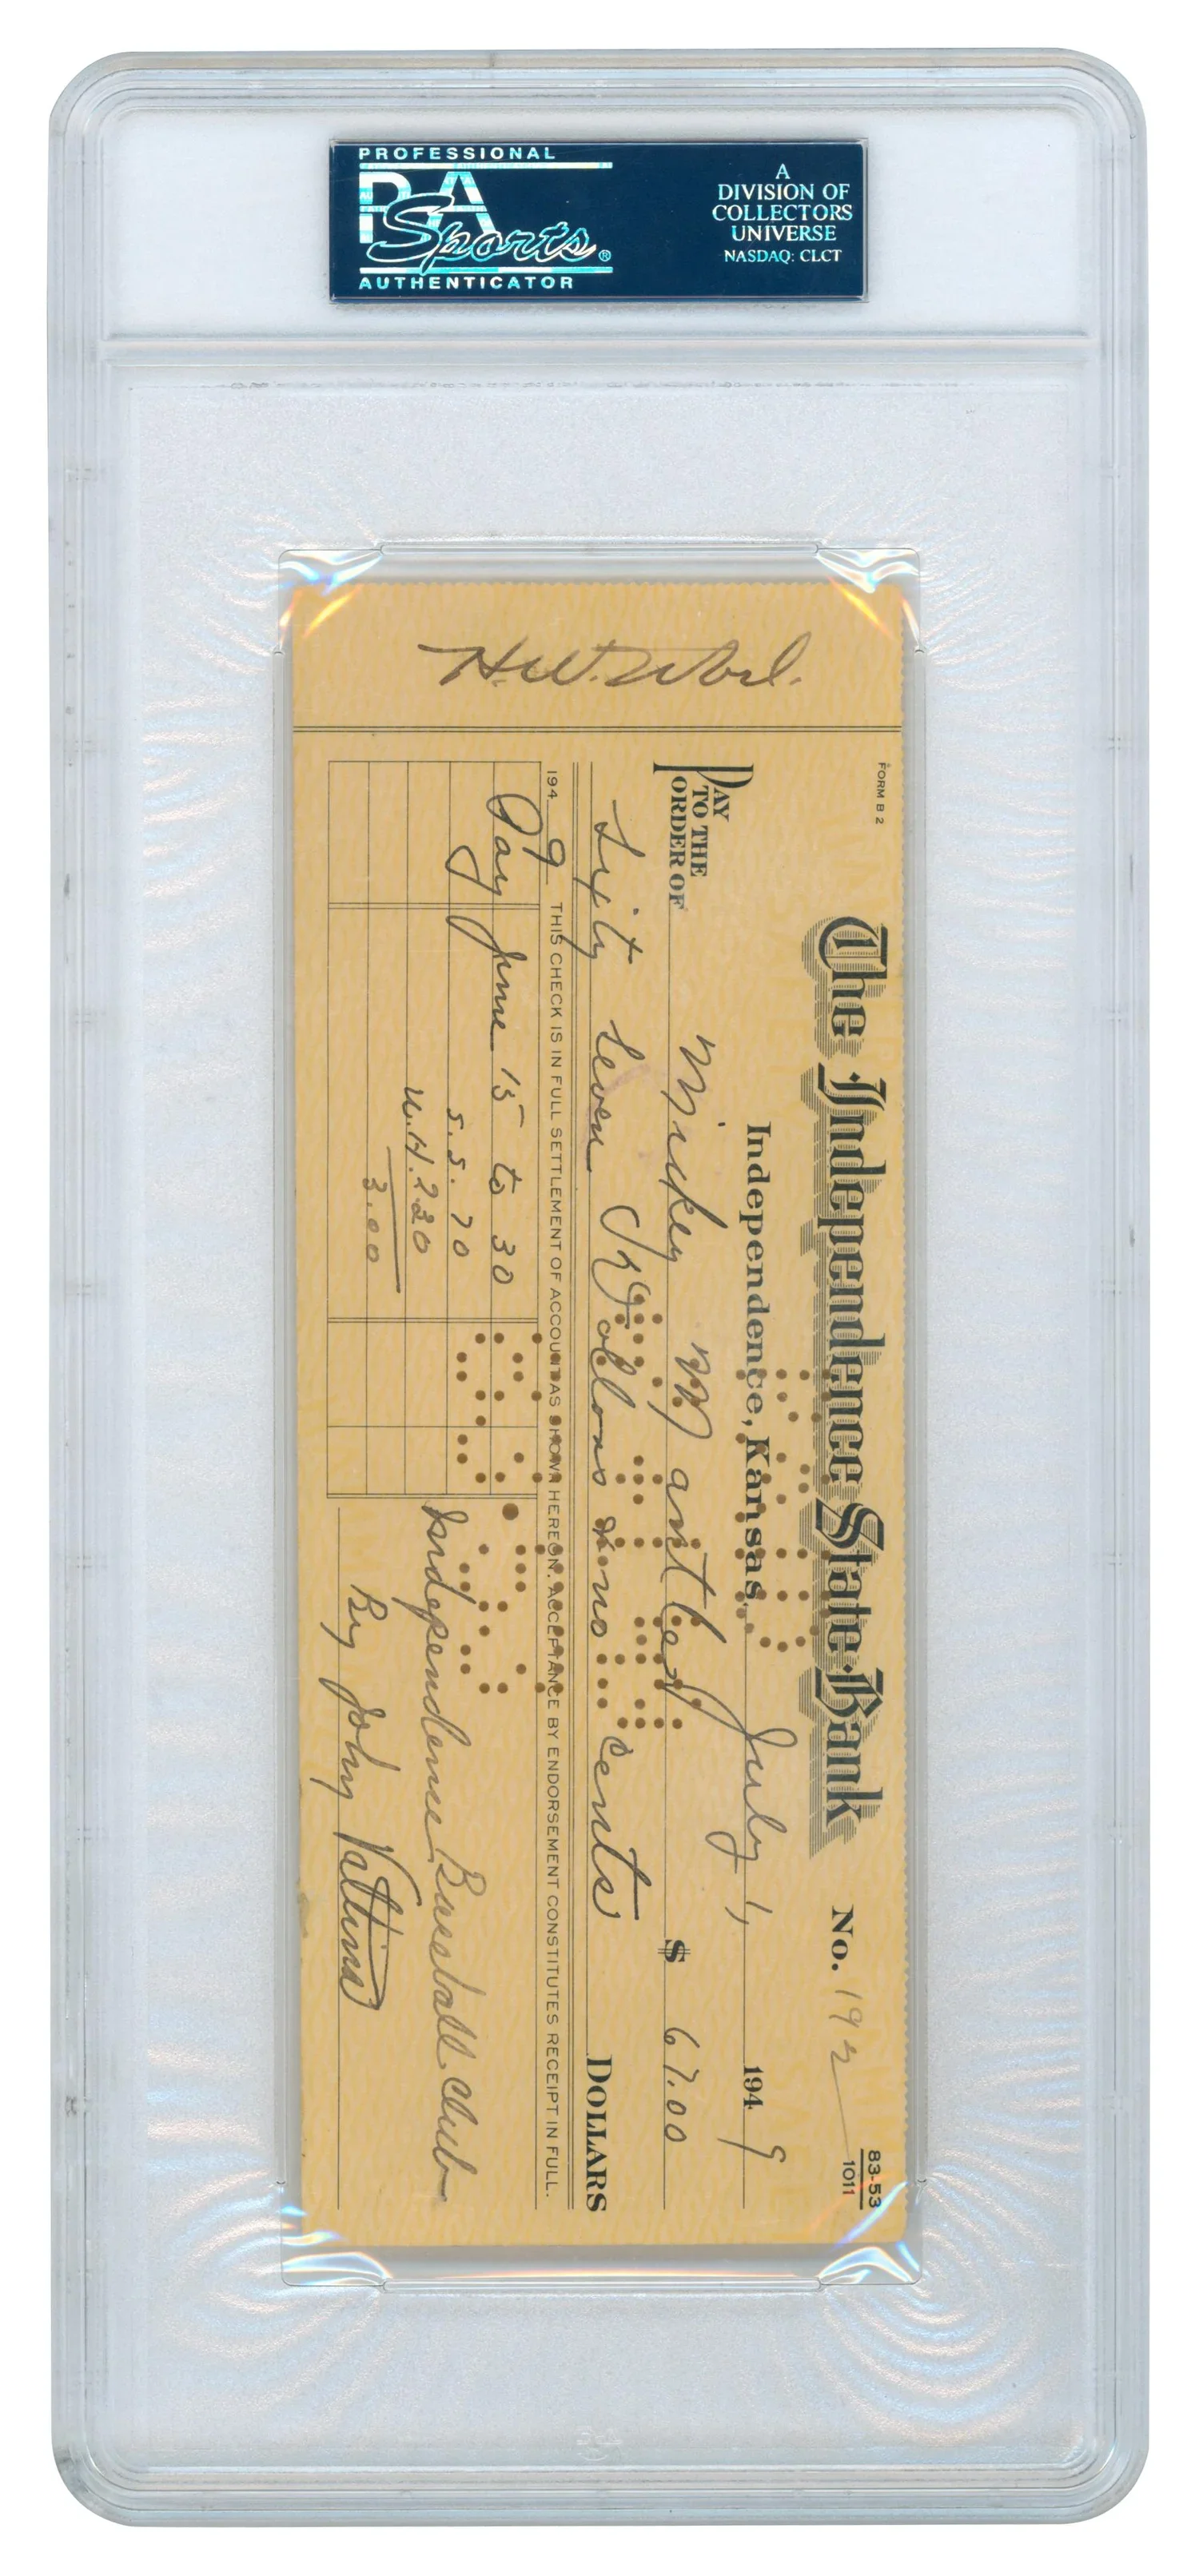 PROFESSIONAL
PSA
Sports®
AUTHENTICATOR
A
DIVISION OF
COLLECTORS
UNIVERSE
NASDAQ: CLCT
H.W.
FORM B 2
The Independence State Bank
No. 192
83-53
1011
Independence, Kansas, July 1, 1949
PAY
TO THE
ORDER OF
Mickey Mantle
$ 67.00
Sixty Seven Dollars & no cents
DOLLARS
1949 THIS CHECK IS IN FULL SETTLEMENT OF ACCOUNT AS SHOWN HEREON. ACCEPTANCE BY ENDORSEMENT CONSTITUTES RECEIPT IN FULL.
Pay June 15 to 30
S.S. 70
W.H. 2 30
3.00
Independence Baseball Club
By John